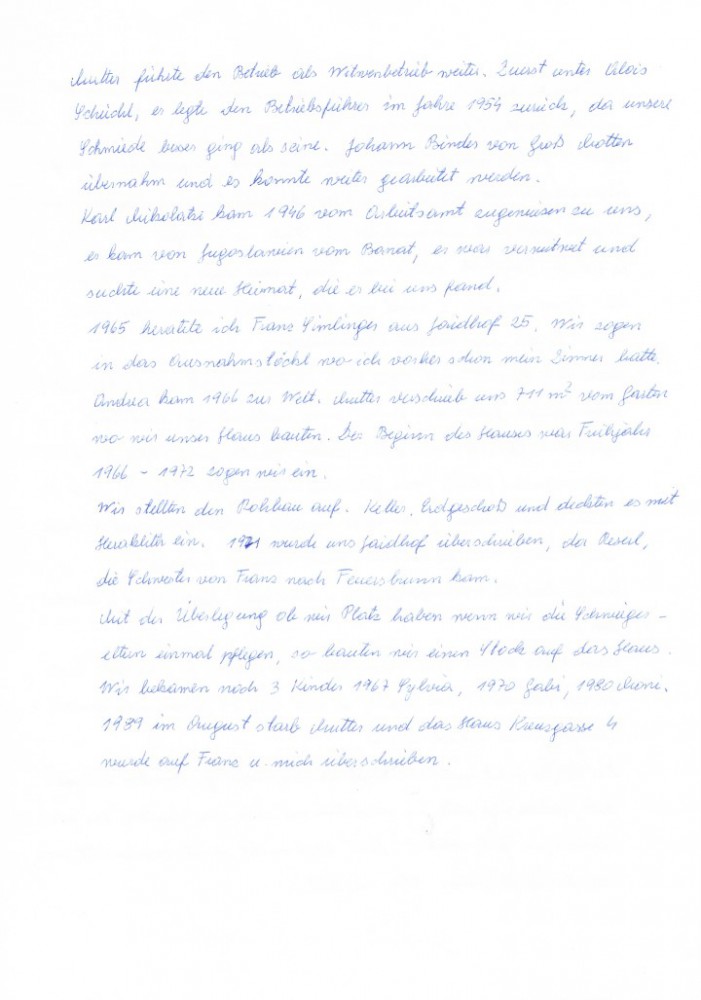 Mutter führte den Betrieb als Witwenbetrieb weiter. Zuerst unter Alois
Scheidl, er legte den Betriebsführer im Jahre 1954 zurück, da unsere
Schmiede besser ging als seine. Johann Binder von Groß Motten
übernahm und es konnte weiter gearbeitet werden.
Karl Mikolatsi kam 1946 vom Arbeitsamt zugewiesen zu uns,
er kam von Jugoslawien vom Banat, er war verwitwet und
suchte eine neue Heimat, die er bei uns fand.
1965 heiratete ich Franz Simlinger aus Jaidhof 25. Wir zogen
in das Ausnahmstöckl wo ich vorher schon mein Zimmer hatte.
Andrea kam 1966 zur Welt. Mutter verschrieb uns 711 m² vom Garten
wo wir unser Haus bauten. Der Beginn des Hauses war Frühjahr
1966 - 1972 zogen wir ein.
Wir stellten den Rohbau auf. Keller, Erdgeschoß und deckten es mit
Heraklith ein. 1971 wurde uns Jaidhof überschrieben, da Reserl,
die Schwester von Franz nach Feuersbrunn kam.
Mit der Überlegung ob wir Platz haben wenn wir die Schwieger-
eltern einmal pflegen, so bauten wir einen Stock auf das Haus.
Wir bekamen noch 3 Kinder 1967 Sylvia, 1970 Gabi, 1980 Moni.
1989 im August starb Mutter und das Haus Kreuzgasse 4
wurde auf Franz u. mich überschrieben.